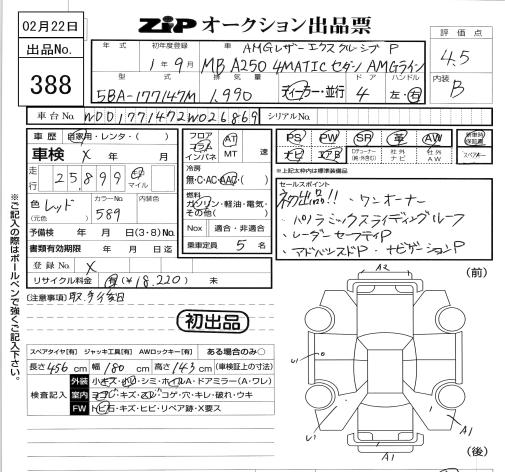 02月22日
出品No.
388
ZiP オークション出品票
評価点
4.5
内装
B
年式
初年度登録
車
AMGレザーエクスクルシブP
1年9月
MB A250 4MATICセダン AMGライン
型式
排気量
ドア
ハンドル
5BA-177147M
1,990
ディーラー・並行
4
左・右
車台No.
W1D1771472W026869
シリアルNo.
車歴
自家用・レンタ・( )
車検
X 年 月
走行
25,899
km
マイル
色
レッド
(元色)
カラーNo.
589
内装色
予備検 年 月 日(3・8)No.
書類有効期限 年 月 日迄
登録No.
X
リサイクル料金 有(¥18,220) 未
フロア
コラム
インパネ
AT
MT 速
冷房
無・C・AC・AAC・( )
燃料
ガソリン・軽油・電気・
その他( )
Nox
適合・非適合
乗車定員 5 名
PS
PW
SR
革
AW
ナビ
エアB
TVチューナー
(純・外含む)
社外
ナビ
社外
AW
新車時
保証書
スペアキー
※上記太枠内は標準装備品
セールスポイント
初出品!!・ワンオーナー
・パノラミックスライディングルーフ
・レーダーセーフティP
・アドバンスドP・ナビゲーションP
[注意事項]
取、タイ室日
初出品
スペアタイヤ[有] ジャッキ工具[有] AWロックキー[有]
ある場合のみ○
長さ 456 cm 幅 180 cm 高さ 143 cm (車検証上の寸法)
検査記入
外装
小キズ・凹・シミ・ホイルA・ドアミラー(A・ワレ)
室内
ヨゴレ・キズ・スレ・コゲ・穴・キレ・破れ・ウキ
FW
トビ石・キズ・ヒビ・リペア跡・X要ス
※ご記入の際はボールペンで強くご記入下さい。
(前)
A2
U1
U1
A1
A1
(後)